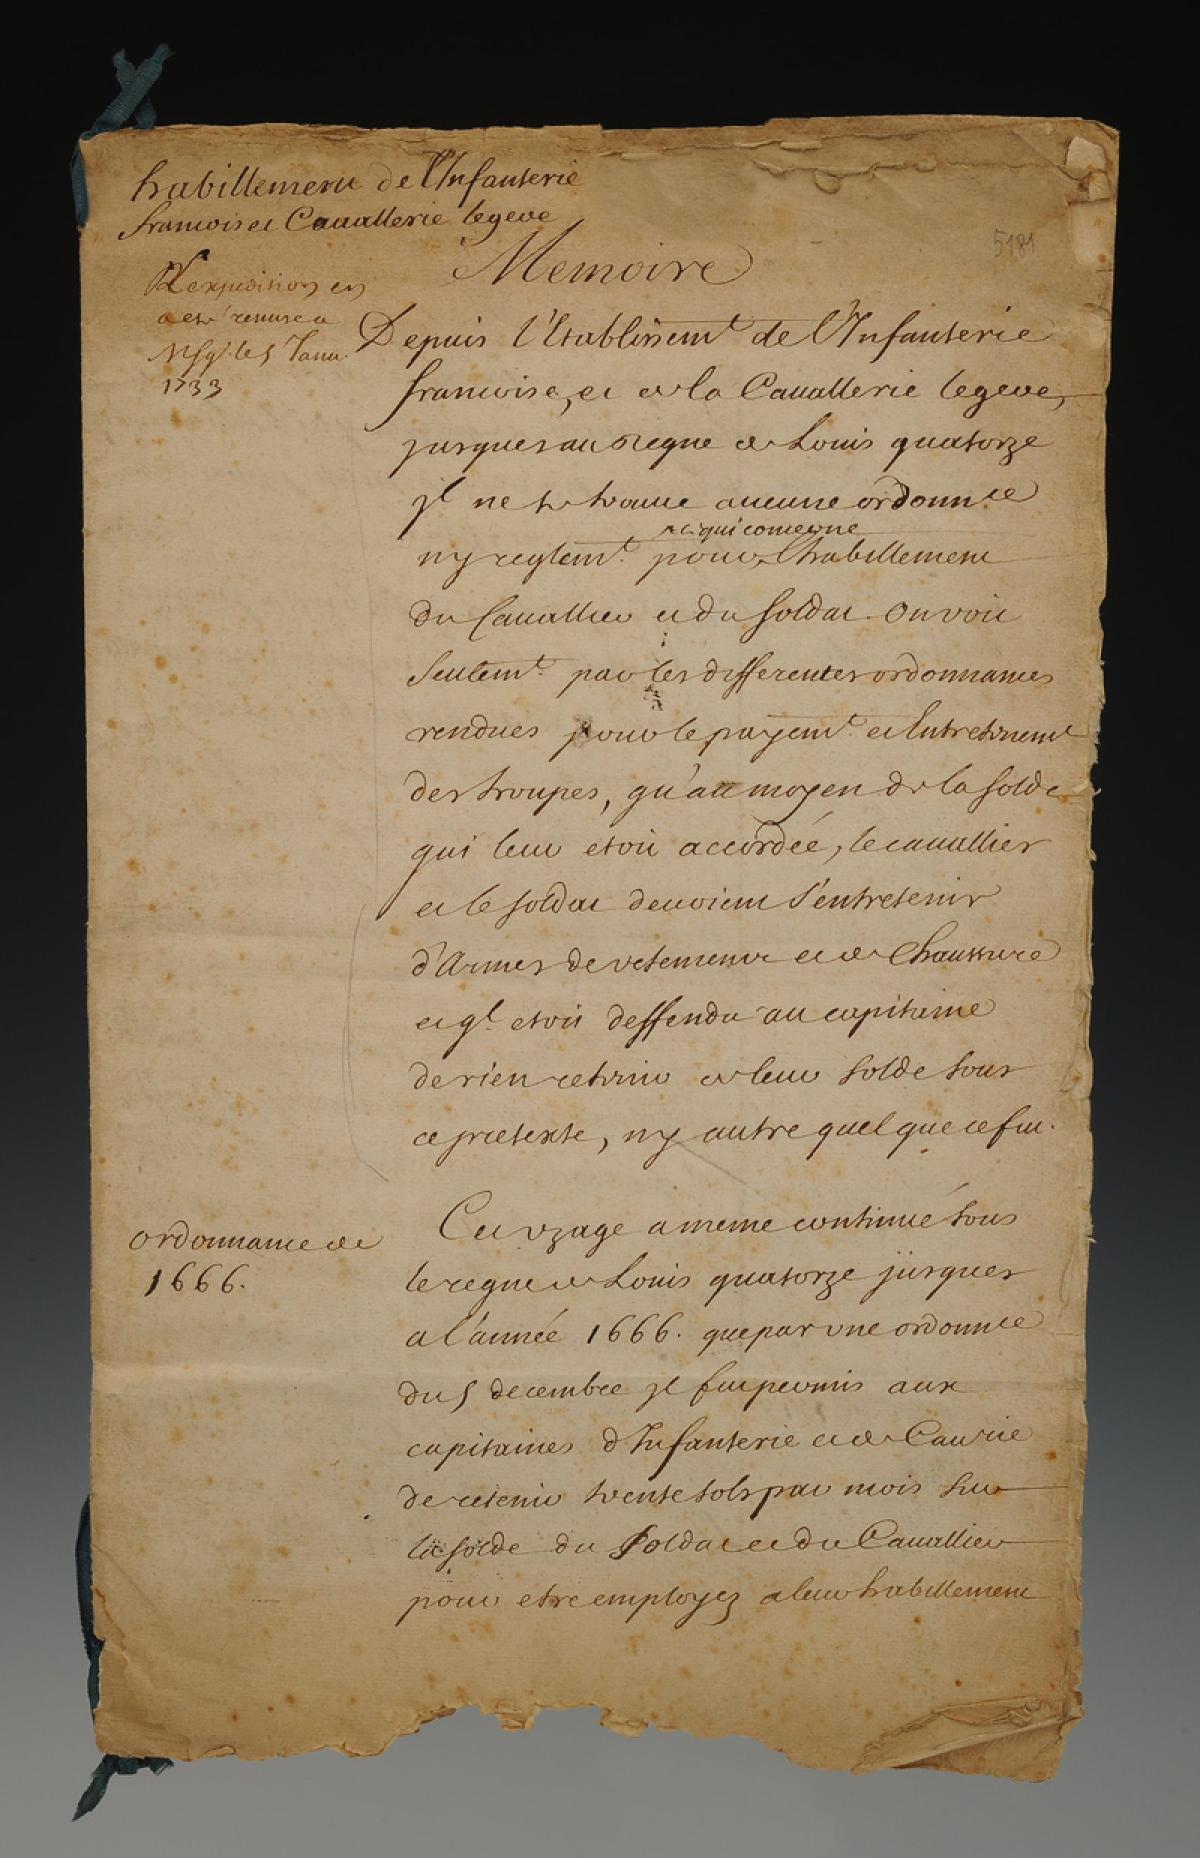 habillement de l'Infanterie
francoise et Cauallerie legere
5181
Memoire
L'expedition en
a eté remise a
Msgr. le 5 Janu.
1733
Depuis l'Etablissemt. de l'Infanterie
francoise, et de la Cauallerie legere,
jusques au regne de Louis quatorze
jl ne se trouue aucune ordonnce
qui concerne
ny reglemt. pour l'habillement
du Cauallier et du soldat. On voit
seulemt. par les differentes ordonnances
rendues pour le payemt. et Entretinemt
des troupes, qu'au moyen de la solde
qui leur etoit accordée, le cauallier
et le soldat deuoient s'entretenir
d'Armes de vetements et de Chaussure
et ql. etoit deffendu au capitaine
de rien retenir de leur solde sous
ce pretexte, ny autre quelque ce fut.
ordonnance de
1666.
Cet vzage a meme continué sous
le regne de Louis quatorze jusques
a l'année 1666. que par vne ordonnce
du 5 decembre jl fut permis aux
capitaines d'Infanterie et de Caurie
de retenir trente sols par mois sur
la solde du soldat et du Cauallier
pour etre employez a leur habillement